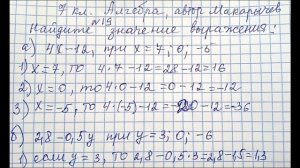 7 кл. Алгебра, автор Макарычев
№19
Найдите значение выражения:
а) 4x-12, при x = 7; 0; -5
1) x = 7, то 4·7-12=28-12=16
2) x = 0, то 4·0-12=0-12=-12
3) x = -5, то 4·(-5)-12=-20-12=-36
б) 2,8-0,5y при y = 3; 0; -6
1) если y = 3, то 2,8-0,5·3=2,8-1,5=1,3